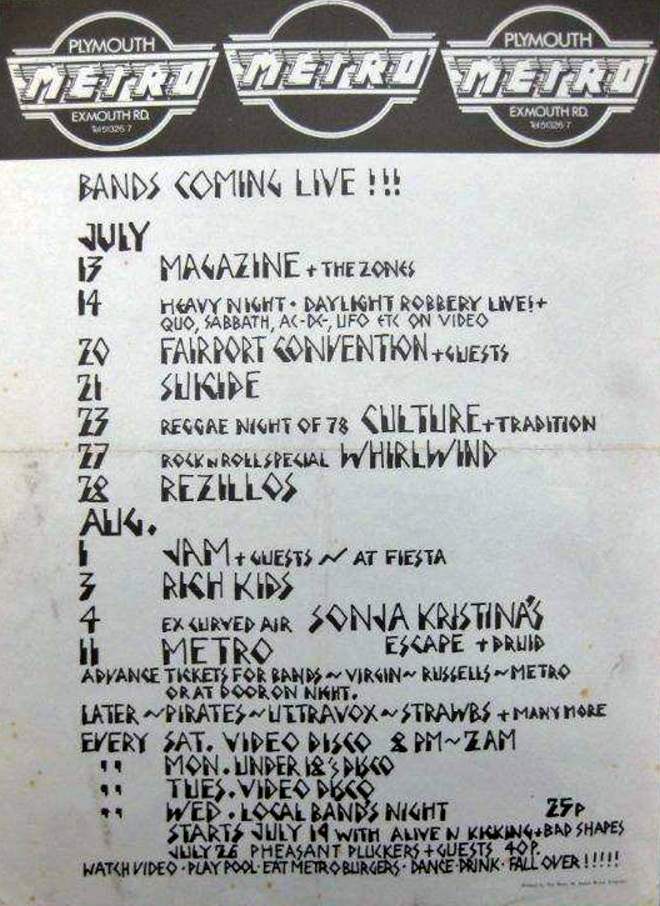 PLYMOUTH
METRO
EXMOUTH RD.
Tel 51326 7
METRO
PLYMOUTH
METRO
EXMOUTH RD.
Tel 51326 7
BANDS COMING LIVE !!!
JULY
13 MAGAZINE + THE ZONES
14 HEAVY NIGHT · DAYLIGHT ROBBERY LIVE! +
QUO, SABBATH, AC-DC-, UFO ETC ON VIDEO
20 FAIRPORT CONVENTION + GUESTS
21 SUICIDE
23 REGGAE NIGHT OF 78 CULTURE + TRADITION
27 ROCK N ROLL SPECIAL WHIRLWIND
28 REZILLOS
AUG.
1 JAM + GUESTS ~ AT FIESTA
3 RICH KIDS
4 EX CURVED AIR SONJA KRISTINA'S
ESCAPE + DRUID
11 METRO
ADVANCE TICKETS FOR BANDS ~ VIRGIN ~ RUSSELLS ~ METRO
OR AT DOOR ON NIGHT.
LATER ~ PIRATES ~ ULTRAVOX ~ STRAWBS + MANY MORE
EVERY SAT. VIDEO DISCO 8 PM ~ 2AM
" MON. UNDER 18'S DISCO
" TUES. VIDEO DISCO
" WED. LOCAL BANDS NIGHT 25P
STARTS JULY 19 WITH ALIVE N KICKING + BAD SHAPES
JULY 26 PHEASANT PLUCKERS + GUESTS 40P.
WATCH VIDEO · PLAY POOL · EAT METROBURGERS · DANCE · DRINK · FALL OVER !!!!!